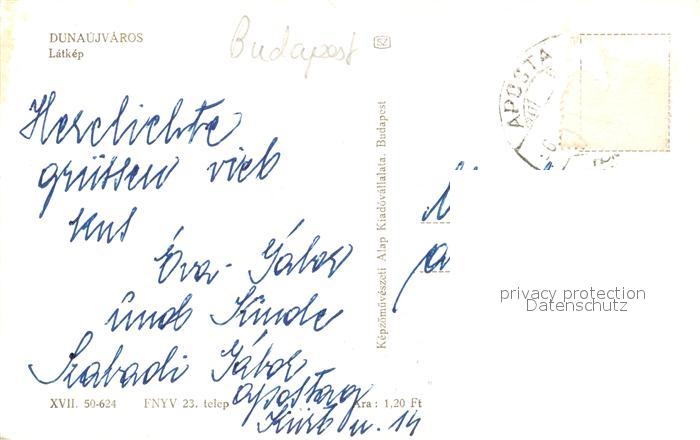 DUNAÚJVÁROS
Látkép
Budapest
SZ
APOSTA
Herzlichte
grüssen vieb
Kus
Éva - Gábor
ünob Kinde
Szabadi Gábor
apostag
Kürt u. 14
Képzőművészeti Alap Kiadóvállalata, Budapest
privacy protection
Datenschutz
XVII. 50-624 FNYV 23. telep Ára: 1,20 Ft